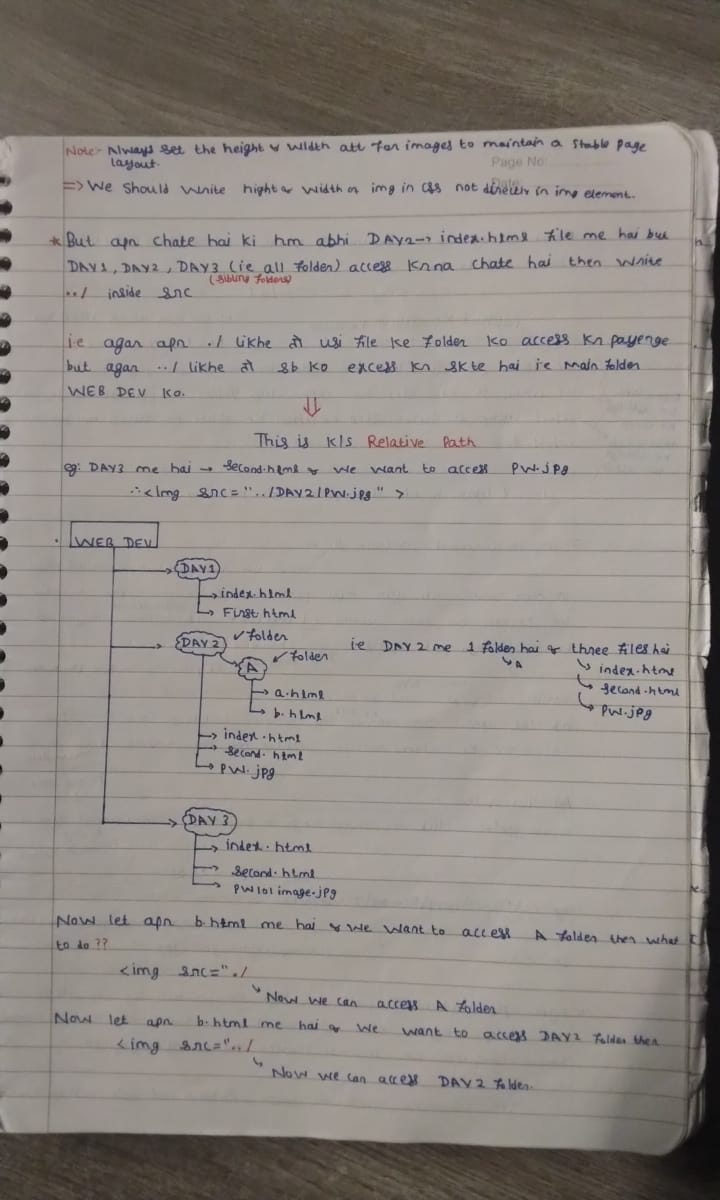 Note:- Always set the height & width att for images to maintain a stable page
layout.
Page No:
=> We should write hight & width of img in css not directly in img element.
* But apn chate hai ki hm abhi DAY2→ index.html file me hai but
DAY1, DAY2, DAY3 (ie all folder) access krna chate hai then write
(sibling folders)
../ inside src
ie agar apn ./ likhe to usi file ke folder ko access kr payenge
but agar ../ likhe to sb ko excess kr skte hai ie main folder
WEB DEV ko.
⇓
This is k/s Relative Path
eg: DAY3 me hai → second.html & we want to access PW.jpg
∴ <Img src="../DAY2/PW.jpg" >
WEB DEV
→ DAY1
→ index.html
→ First.html
→ DAY 2 ✓folder
ie DAY 2 me 1 folder hai & three files hai
↳ A
→ index.html
→ second.html
→ PW.jpg
A ✓folder
→ a.html
→ b.html
→ index.html
→ second.html
→ PW.jpg
→ DAY 3
→ index.html
→ second.html
→ PW101 image.jpg
Now let apn b.html me hai & we want to access A folder then what
to do ??
<img src="./
↳ Now we can access A folder
Now let apn b.html me hai & we want to access DAY2 folder then
<img src="../
↳ Now we can access DAY2 folder.